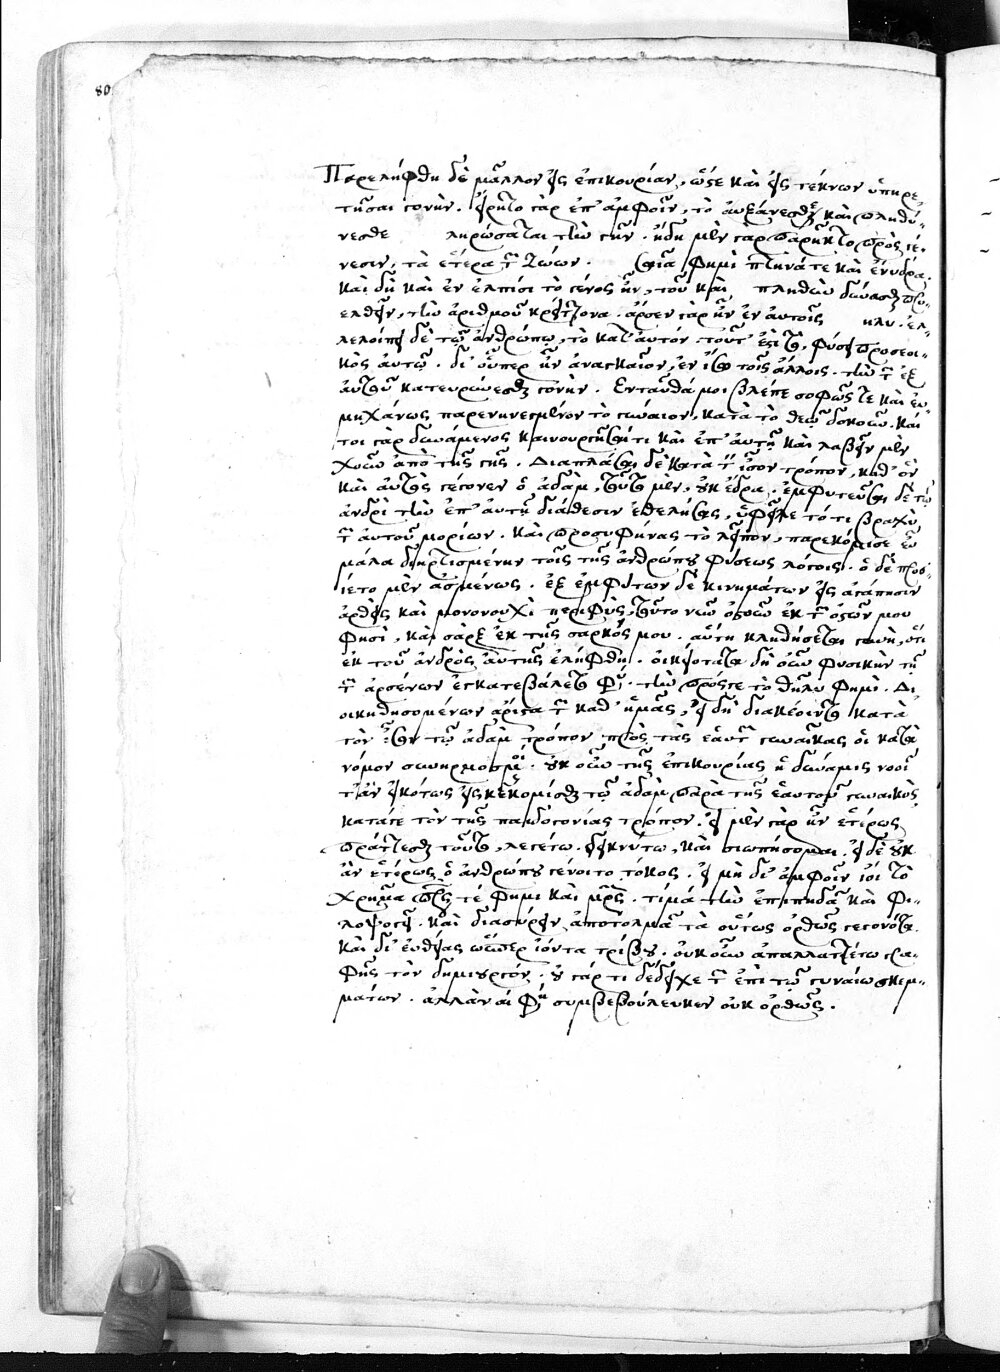 80
Παρελήφθη δὲ μᾶλλον εἰς ἐπικουρίαν, ὥστε καὶ εἰς τέκνων ὑπηρε
τῆσαι γονήν. εἴρητο γὰρ ἐπ' ἀμφοῖν, τὸ αὐξάνεσθε καὶ πληθύ-
νεσθε πληρώσατε τὴν γῆν. ἤδη μὲν γὰρ παρῆκτο πρὸς γέ-
νεσιν, τὰ ἕτερα τῶν ζώων. φημὶ πτηνά τε καὶ ἔνυδρα.
καὶ δὴ καὶ ἐν ἐλπίσι τὸ γένος ἦν, τοῦ καὶ πληθὺν δύνασθαι
ελθεῖν, τὴν ἀριθμοῦ κρείττονα. ἄρσεν γὰρ ἦν ἐν αὐτοῖς θῆλυ. ἐλ-
λελοίπει δὲ τῷ ἀνθρώπῳ, τὸ κατ' αὐτόν. τοῦτ' ἔστι, φύσει προσεοι-
κὸς αὐτῷ. δι' οὗπερ ἦν ἀναγκαῖον, ἐν ἴσῳ τοῖς ἄλλοις. τὴν τῶν ἐξ
αὐτοῦ κατευρύνεσθαι γονήν. Ἐνταῦθά μοι βλέπε σοφῶς τε καὶ εὐ
μηχάνως, παρενηνεγμένον τὸ γύναιον, κατὰ τὸ θεῷ δοκοῦν. καί
τοι γὰρ δυνάμενος καινουργῆσαί τι καὶ ἐπ' αὐτῇ καὶ λαβεῖν μὲν
χοῦν ἀπὸ τῆς γῆς. Διαπλάσαι δὲ κατὰ τὸν ἴσον τρόπον, καθ' ὃν
καὶ αὐτὸς γέγονεν ὁ ἀδάμ, τοῦτο μὲν, οὐκ ἔδρα. ἐμφυτεῦσαι δὲ τῷ
ἀνδρὶ τὴν ἐπ' αὐτῇ διάθεσιν ἐθελήσας, ὑφεῖλε τό τι βραχὺ
τῶν αὐτοῦ μορίων. καὶ προσυφήνας τὸ λεῖπον, παρεκόμισε εὖ
μάλα διηρτισμένην τοῖς τῆς ἀνθρώπου φύσεως λόγοις. ὁ δὲ προσ-
ίετο μὲν ἀσμένως. ἐξ ἐμφύτων δὲ κινημάτων εἰς ἀγάπησιν
ἀρθεὶς καὶ μονονουχὶ περιφὺς, τοῦτο νῦν ὀστοῦν ἐκ τῶν ὀστῶν μου
φησὶ, καὶ σὰρξ ἐκ τῆς σαρκός μου. αὕτη κληθήσεται γυνή, ὅτι
ἐκ τοῦ ἀνδρὸς αὐτῆς ἐλήφθη. οἰκειότατα δὴ οὖν φυσικὴν τῇ
τῶν ἀρσένων ἐγκατεβάλετο φύσει. τὴν πρός γε τὸ θῆλυ φημὶ. Δι
οικηθησομένων ἄριστα τῶν καθ' ἡμᾶς, εἰ δὴ διακέοιντο κατὰ
τὸν ἴσον τῷ ἀδὰμ τρόπον πρὸς τὰς ἑαυτῶν γυναῖκας οἱ κατὰ
νόμον συνηρμοσμένοι. οὐκ οὖν τῆς ἐπικουρίας ἡ δύναμις νοοῖ
τ' ἂν εἰκότως εἰσκεκομίσθαι τῷ ἀδὰμ παρὰ τῆς ἑαυτοῦ γυναικὸς
κατά γε τὸν τῆς παιδογονίας τρόπον. εἰ μὲν γὰρ ἦν ἑτέρως
πράττεσθαι τοῦτο, λεγέτω. δεικνύτω, καὶ σιωπήσομαι. εἰ δὲ οὐκ
ἂν ἑτέρως ὁ ἀνθρώπου γένοιτο τόκος. εἰ μὴ δι' ἀμφοῖν ἴοι τὸ
χρῆμα πατρός τέ φημι καὶ μητρός. τί μάτην ἐπιπηδᾷ καὶ φι-
λοψογεῖ. καὶ διασύρειν ἀποτολμᾷ τὰ οὕτως ὀρθῶς γεγονότα.
καὶ δι' εὐθείας ὥσπερ ἰόντα τρίβου. οὐκ οὖν ἀπαλλαττέτω γρα-
φῆς τὸν δημιουργόν. οὐ γάρ τι δέδειχε τῶν ἐπὶ τῷ γυναίῳ σκεμ-
μάτων. ἀλλὰ ναί φησι συμβεβούλευκεν οὐκ ὀρθῶς.